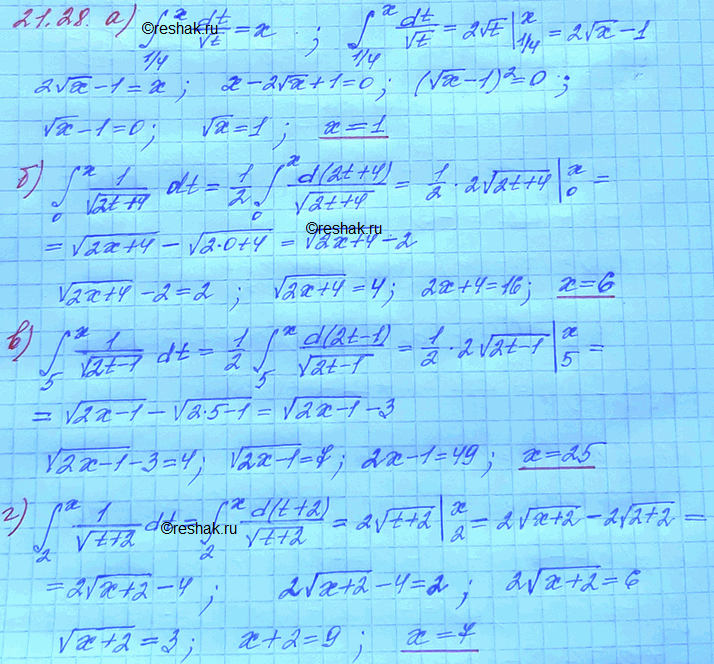 21.28. а) ∫_{1/4}^{x} dt/√t = x ; ∫_{1/4}^{x} dt/√t = 2√t |_{1/4}^{x} = 2√x − 1
©reshak.ru
2√x − 1 = x ; x − 2√x + 1 = 0 ; (√x − 1)² = 0 ;
√x − 1 = 0 ; √x = 1 ; x = 1
б) ∫_{0}^{x} 1/√(2t+4) dt = 1/2 ∫_{0}^{x} d(2t+4)/√(2t+4) = 1/2 · 2√(2t+4) |_{0}^{x} =
©reshak.ru
= √(2x+4) − √(2·0+4) = √(2x+4) − 2
√(2x+4) − 2 = 2 ; √(2x+4) = 4 ; 2x+4 = 16 ; x = 6
в) ∫_{5}^{x} 1/√(2t−1) dt = 1/2 ∫_{5}^{x} d(2t−1)/√(2t−1) = 1/2 · 2√(2t−1) |_{5}^{x} =
= √(2x−1) − √(2·5−1) = √(2x−1) − 3
√(2x−1) − 3 = 4 ; √(2x−1) = 7 ; 2x−1 = 49 ; x = 25
г) ∫_{2}^{x} 1/√(t+2) dt = ∫_{2}^{x} d(t+2)/√(t+2) = 2√(t+2) |_{2}^{x} = 2√(x+2) − 2√(2+2) =
©reshak.ru
= 2√(x+2) − 4 ; 2√(x+2) − 4 = 2 ; 2√(x+2) = 6
√(x+2) = 3 ; x+2 = 9 ; x = 7